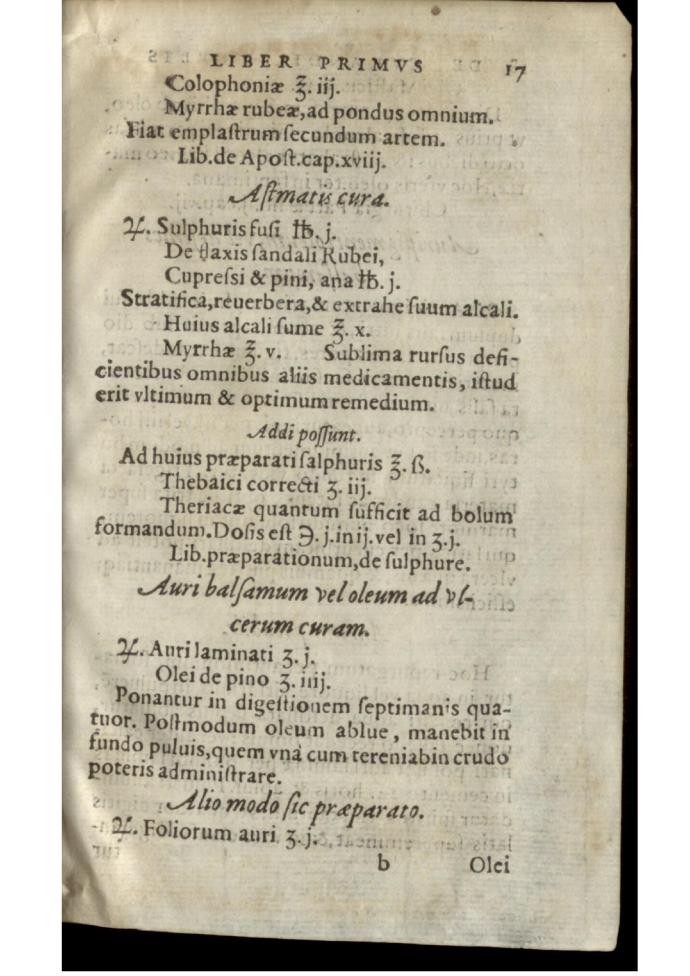 LIBER PRIMVS 17
Colophoniæ ℥. iij.
Myrrhæ rubeæ, ad pondus omnium.
Fiat emplaſtrum ſecundum artem.
Lib. de Apoſt. cap. xviij.
Aſtmatis cura.
♃. Sulphuris fuſi ℔. j.
De taxis ſandali Rubei,
Cupreſsi & pini, ana ℔. j.
Stratifica, reuerbera, & extrahe ſuum alcali.
Huius alcali ſume ℥. x.
Myrrhæ ℥. v. Sublima rurſus defi-
cientibus omnibus aliis medicamentis, iſtud
erit vltimum & optimum remedium.
Addi poſſunt.
Ad huius præparati ſalphuris ℥. ß.
Thebaici correcti ʒ. iij.
Theriacæ quantum ſufficit ad bolum
formandum. Doſis eſt ℈. j. in ij. vel in ʒ. j.
Lib. præparationum, de ſulphure.
Auri balſamum vel oleum ad vl-
cerum curam.
♃. Auri laminati ʒ. j.
Olei de pino ʒ. iiij.
Ponantur in digeſtionem ſeptimanis qua-
tuor. Poſtmodum oleum ablue, manebit in
fundo puluis, quem vnà cum tereniabin crudo
poteris adminiſtrare.
Alio modo ſic præparato.
♃. Foliorum auri ʒ. j.
b Olei